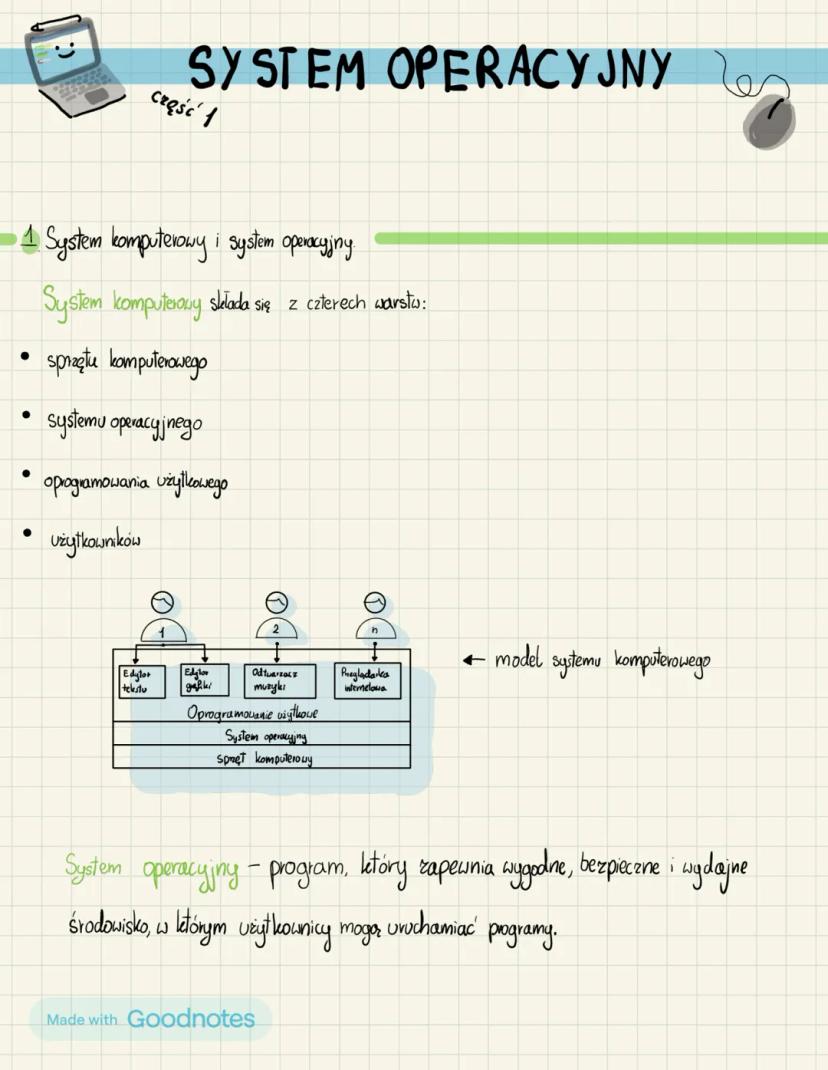 SYSTEM OPERACYJNY
część 1
1 System komputerowy i system operacyjny.
System komputerowy składa się z czterech warstw:
• sprzętu komputerowego
• systemu operacyjnego
• oprogramowania użytkowego
• użytkowników
1 2 n
Edytor tekstu
Edytor grafiki
Odtwarzacz muzyki
Przeglądarka internetowa
← model systemu komputerowego
Oprogramowanie użytkowe
System operacyjny
Sprzęt komputerowy
System operacyjny – program, który zapewnia wygodne, bezpieczne i wydajne
środowisko, w którym użytkownicy mogą uruchamiać programy.
Made with Goodnotes